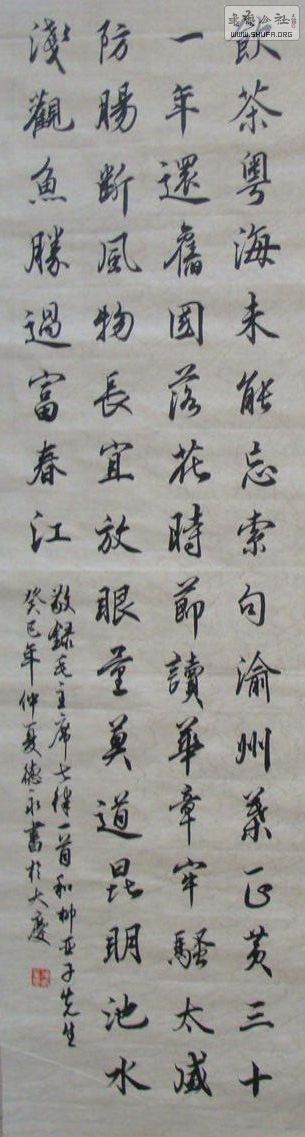 飲茶粵海未能忘索句渝州葉正黃三十
一年還舊國落花時節讀華章牢騷太盛
防腸斷風物長宜放眼量莫道昆明池水
淺觀魚勝過富春江
敬錄毛主席七律一首和柳亞子先生
癸巳年仲夏德永書於大慶
書法公社
WWW.SHUFA.ORG